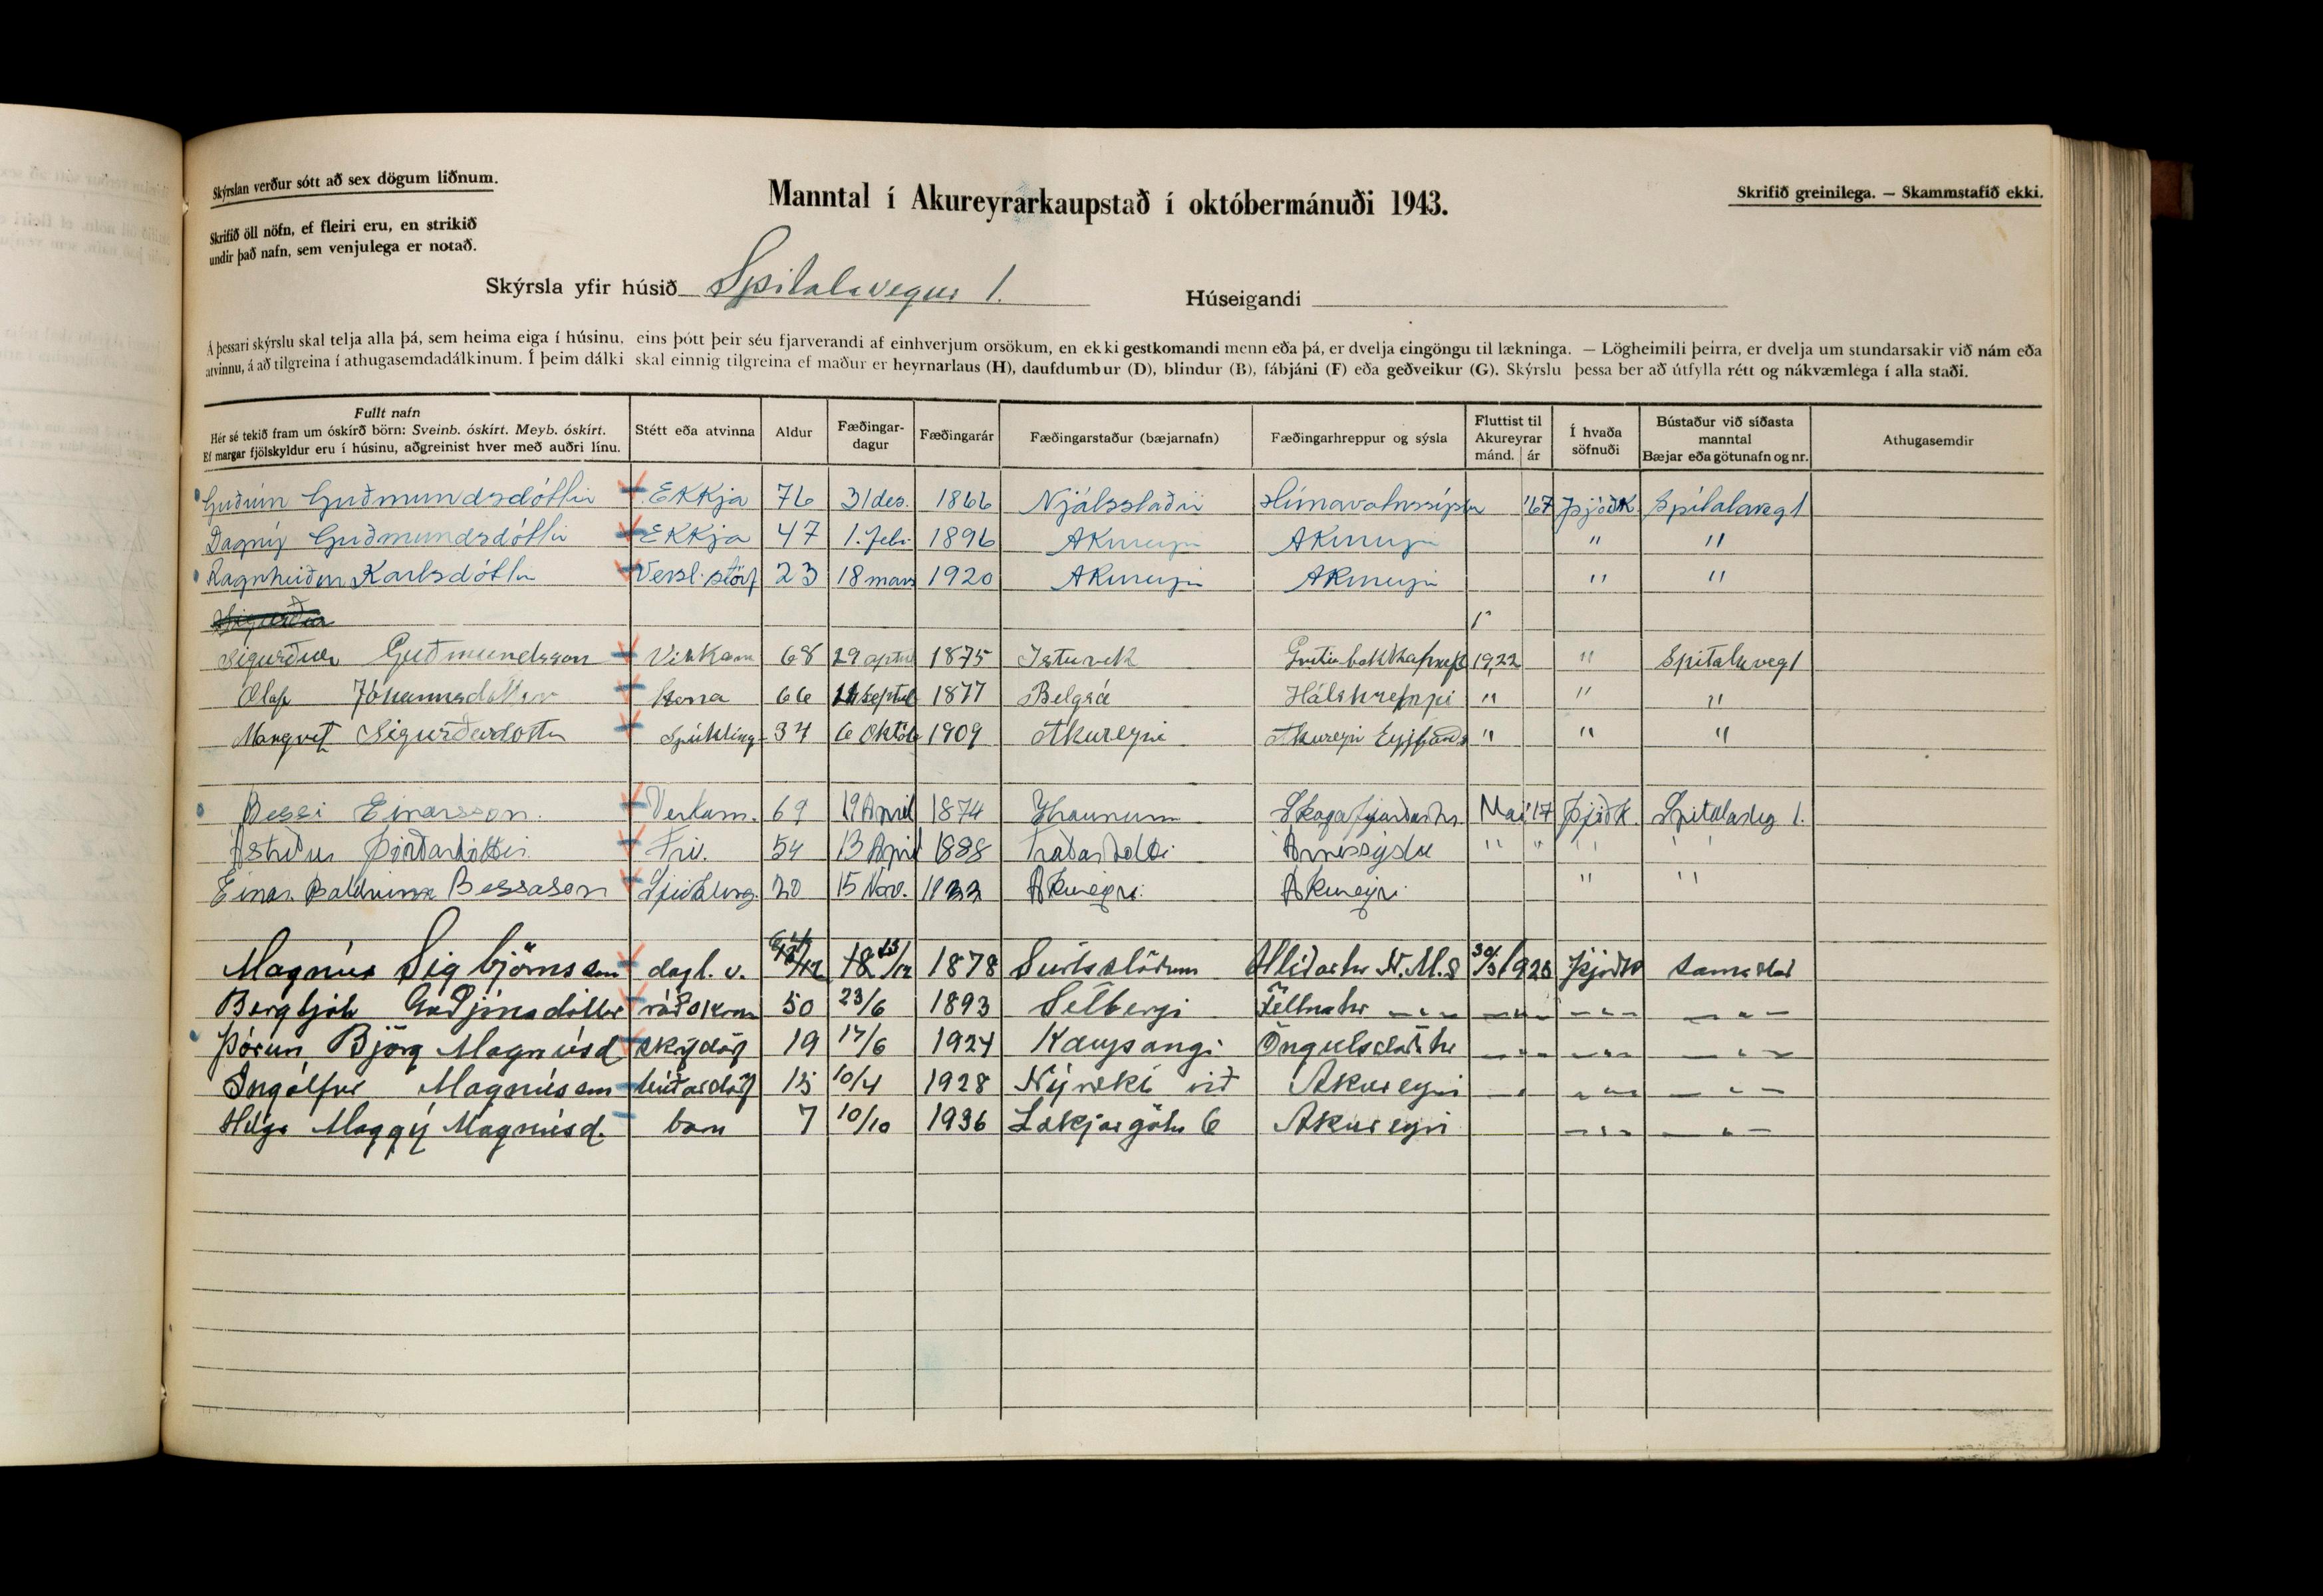 Skýrslan verður sótt að sex dögum liðnum.
Skrifið öll nöfn, ef fleiri eru, en strikið
undir það nafn, sem venjulega er notað.
Manntal í Akureyrarkaupstað í októbermánuði 1943.
Skrifið greinilega. — Skammstafið ekki.
Skýrsla yfir húsið Spitalavegur 1. Húseigandi
Á þessari skýrslu skal telja alla þá, sem heima eiga í húsinu, eins þótt þeir séu fjarverandi af einhverjum orsökum, en ekki gestkomandi menn eða þá, er dvelja eingöngu til lækninga. — Lögheimili þeirra, er dvelja um stundarsakir við nám eða
atvinnu, á að tilgreina í athugasemdadálkinum. Í þeim dálki skal einnig tilgreina ef maður er heyrnarlaus (H), daufdumbur (D), blindur (B), fábjáni (F) eða geðveikur (G). Skýrslu þessa ber að útfylla rétt og nákvæmlega í alla staði.
Fullt nafn
Hér sé tekið fram um óskírð börn: Sveinb. óskírt. Meyb. óskírt.
Ef margar fjölskyldur eru í húsinu, aðgreinist hver með auðri línu.
Stétt eða atvinna
Aldur
Fæðingar-
dagur
Fæðingarár
Fæðingarstaður (bæjarnafn)
Fæðingarhreppur og sýsla
Fluttist til
Akureyrar
mánd. ár
Í hvaða
söfnuði
Bústaður við síðasta
manntal
Bæjar eða götunafn og nr.
Athugasemdir
Guðrún Guðmundsdóttir Ekkja 76 31 des. 1866 Njálsstaðir Húnavatnssýsla '67 Þjóðk. Spítalaveg 1
Dagný Guðmundsdóttir Ekkja 47 1. febr 1896 Akureyri Akureyri " "
Ragnheiður Karlsdóttir Versl. störf 23 18 mars 1920 Akureyri Akureyri " "
Sigurður
Sigurður Guðmundsson Verkam 68 29 1875 1922 " Spitalaveg 1
Olöf Jóhannesdóttir kona 66 1877 Belgsá Hálshreppi " " "
Margret Sigurðardottir Sjúkling 34 6 Októb 1909 Akureyri Akureyri " " "
Bessi Einarsson. Verkam. 69 19 April 1874 Skagafjarðars. Mai '17 Þjóðk. Spitalaveg 1.
Ástríður Þórðardóttir Frú. 54 13 April 1888 Árnessýslu " " " "
Einar Baldvin Bessason Sjúkling. 20 15 Nóv. 1922 Akureyri. Akureyri. " "
Magnús Sigbjörnsson dagl. v. 1878 Hlíðarhr N.M.S 30/5 1928 Þjóðk samastað
Bergljót Guðjónsdóttir ráðskona 50 23/6 1893 Selbergi Fellnahr
Þórun Björg Magnúsd. 19 17/6 1924 Kaupangi Öngulstaðahr
Ingólfur Magnússon 15 10/4 1928 Nýrækt við Akureyri
Helga Maggý Magnúsd. barn 7 10/10 1936 Lækjargötu 6 Akureyri